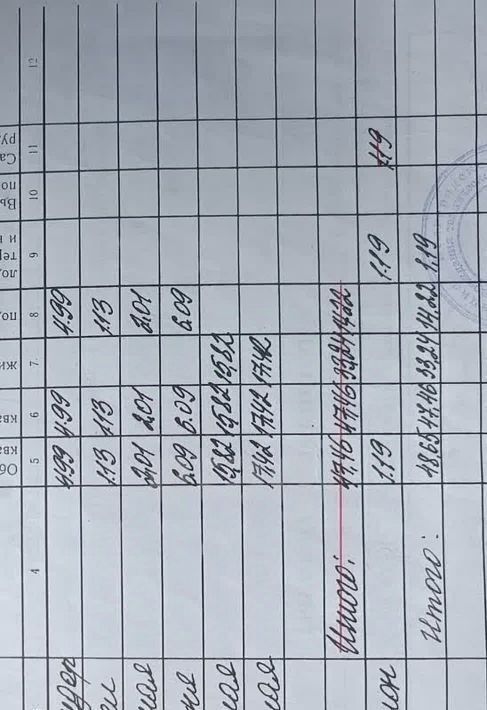 Об ква ква жи по, ло, тер и н Вы по Са ру
4 5 6 7 8 9 10 11 12
4.99 4.99 4.99
1.13 1.13 1.13
ная 2.01 2.01 2.01
6.09 6.09 6.09
ная 15.82 15.82 15.82
ная 17.42 17.42 17.42
Итого: 47.46 47.46 33.24 14.22
кон 1.19 1.19 1.19
Итого: 48.65 47.46 33.24 14.22 1.19